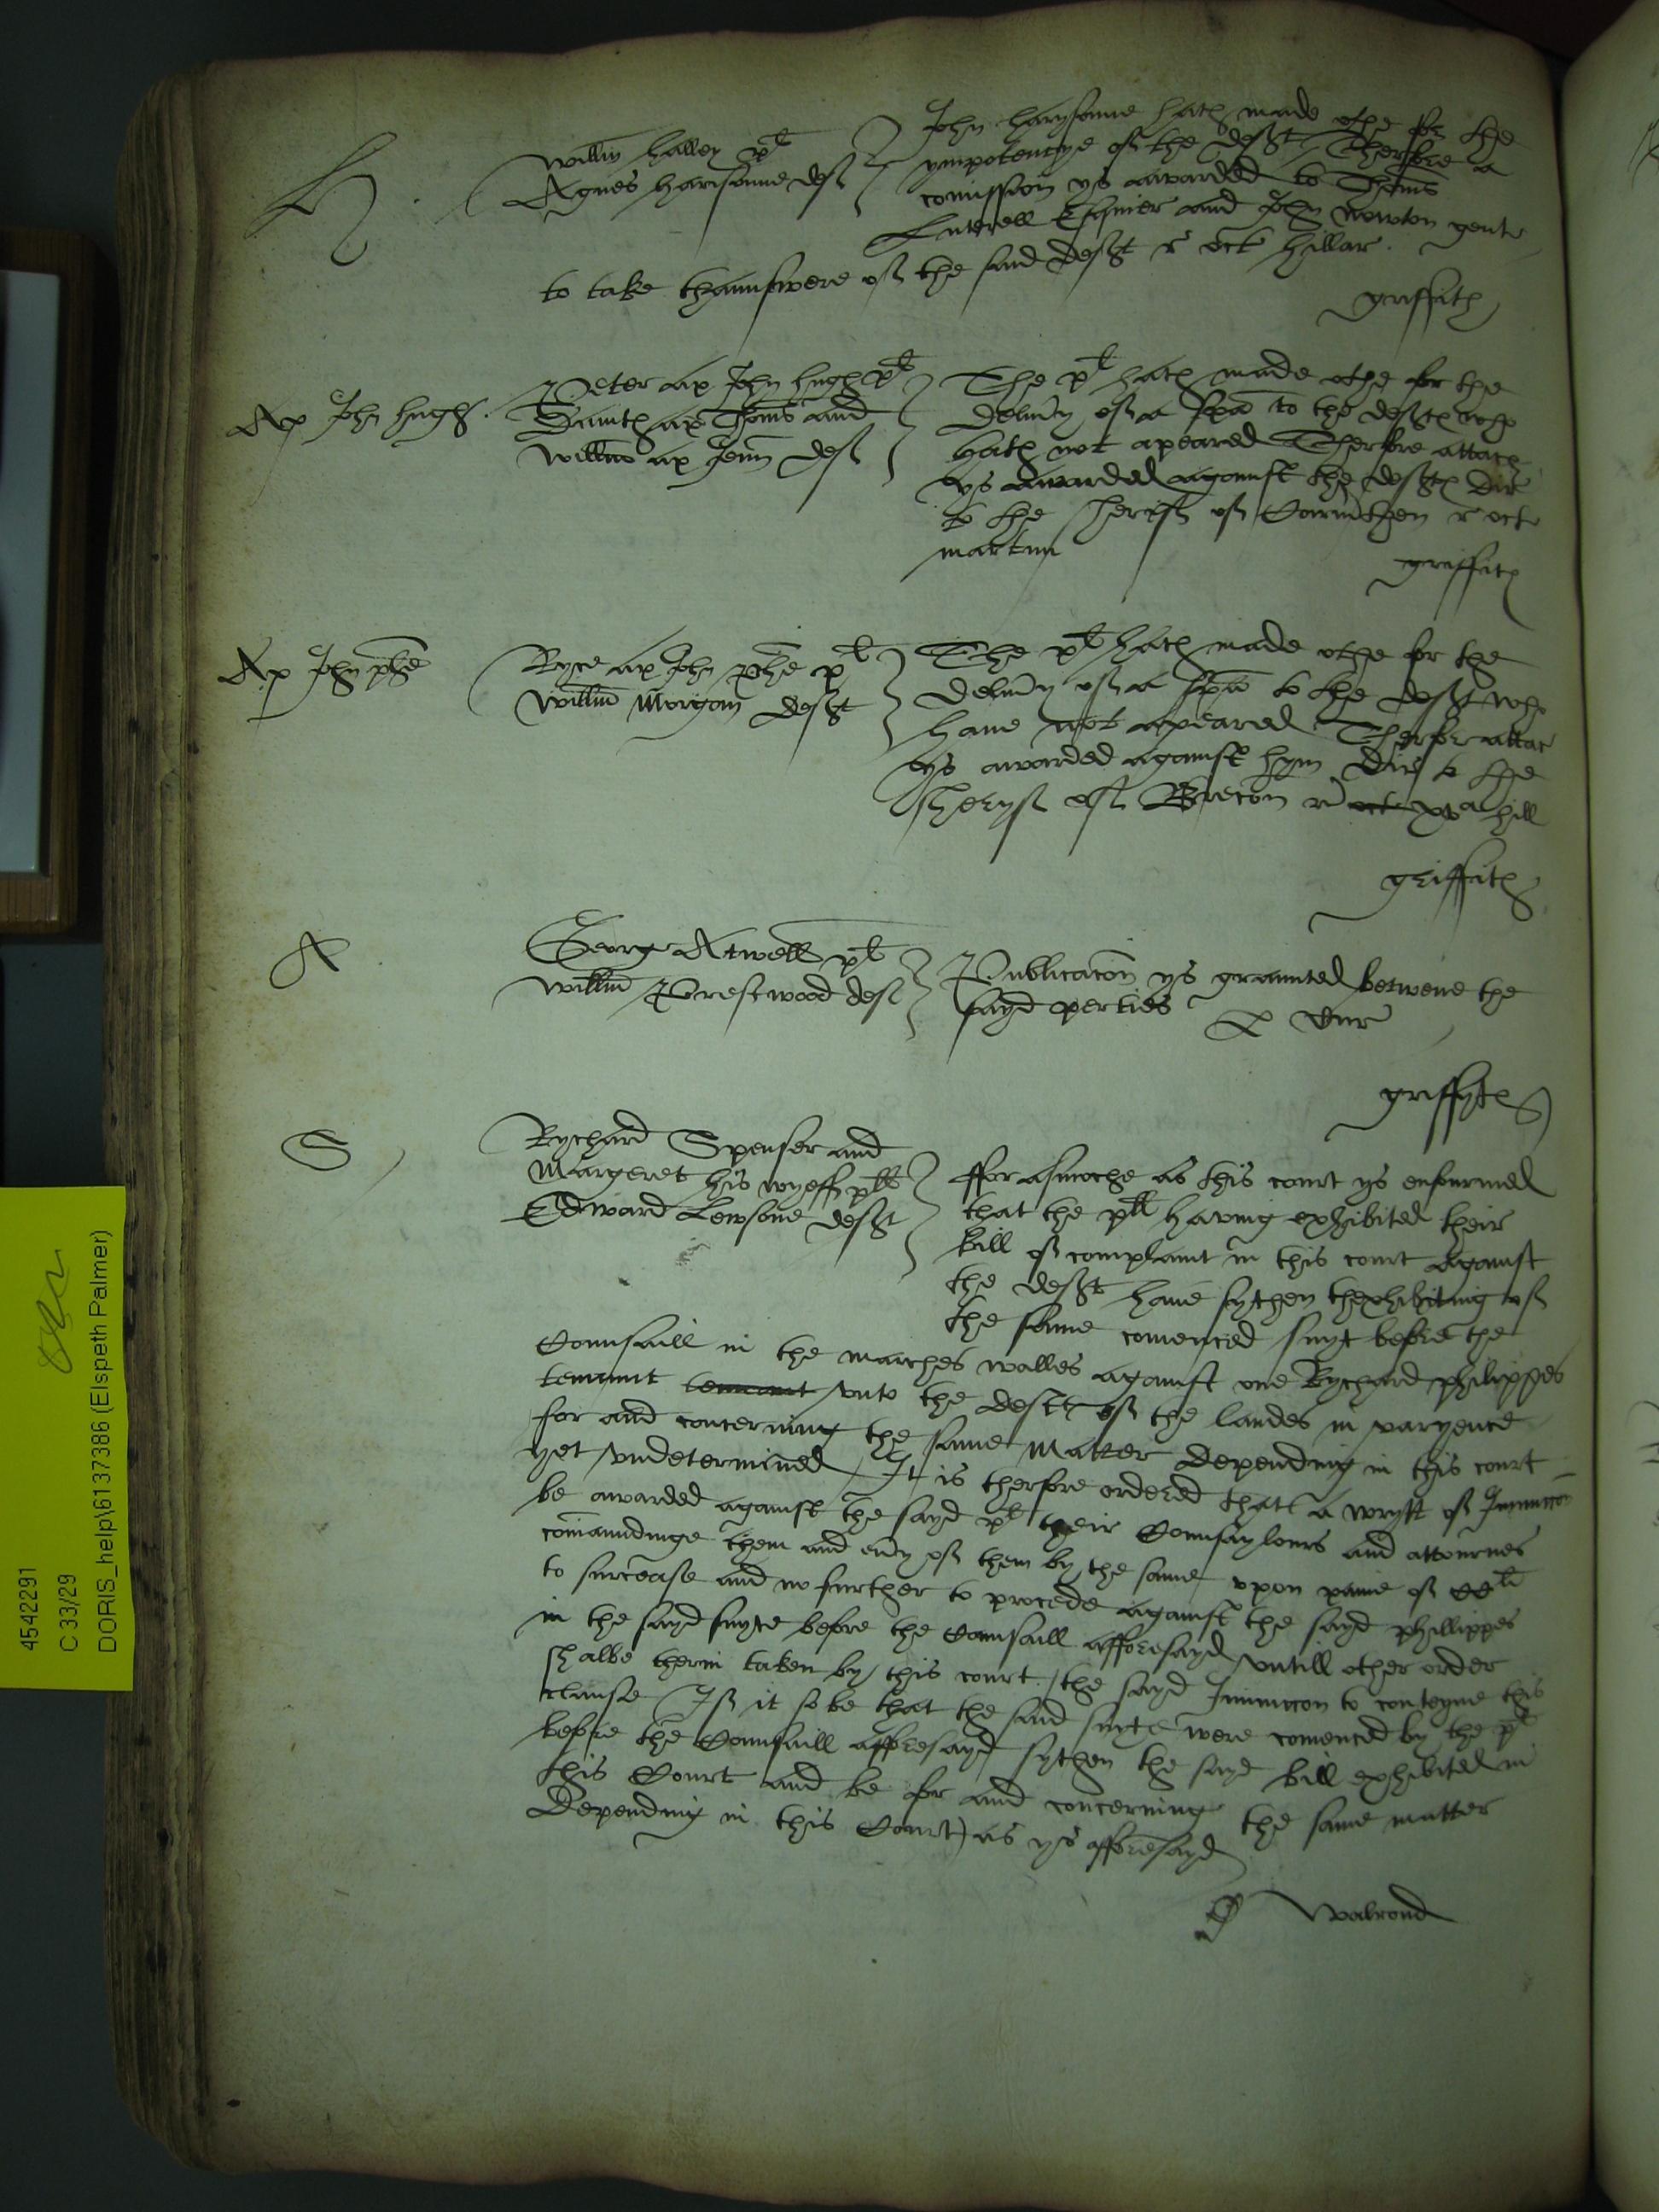 H
Willm halley pl
Agnes harisonne def
John harysonne hath made othe for the
ympotencye of the defft Therfore a
comission ys awarded to Thoms
Lutterell Esquier and John newton gent
to take thaunswere of the said defft r oct hillar
griffith
Ap John hugh
Peter ap John hugh pl
Dauith ap Thoms and
Willm ap Jeun def
The pl hath made othe for the
delivy of a spa to the defft who
hath not apeared Therfore attach
ys awarded against the defft Dir
to the sherif of Carmthen r oct
martini
griffith
Ap John phe
Ryce ap John phe pl
Willm Morgan defft
The pl hath made othe for the
delivy of a spa to the defft who
haue not apeared Therfore attac
ys awarded against hym Dir to the
sheryf of Brecon r oct xva hill
griffith
A
George Atwell pl
Willm Prestwood def
Publicacon ys graunted betwene the
sayd perties
griffyth
S
Rychard Spenser and
Margeret his wyeff plls
Edward Lewsone defft
fforasmoche as this court ys enfourmed
that the pll having exhibited their
bill of complaint in this court against
the defft haue sythen thexhibiting of
the same comenced suyt before the
Counsaill in the marches walles against one Rychard philippes
tenaunt tennant vnto the defft of the landes in varyence
for and concerning the same matter depending in this court
yet vndetermined It is therfore ordered that a wrytt of Iniunccon
be awarded against the sayd pl their Counsaylours and attournes
comaundinge them and euy of them by the same vpon paine of CCli
to surcease and no further to procede against the sayd phillippes
in the sayd suyte before the Counsaill afforesayd vntill other order
shalbe therin taken by this court the sayd Iniunccon to conteyne this
clause If it so be that the said suyte were comenced by the pl
before the Counsaill afforesayd sythen the sayd bill exhibited in
this Court and be for and concerning the same matter
Depending in this Court) as ys afforesayd
Walrond
4542291
C 33/29
DORIS_help\6137386 (Elspeth Palmer)